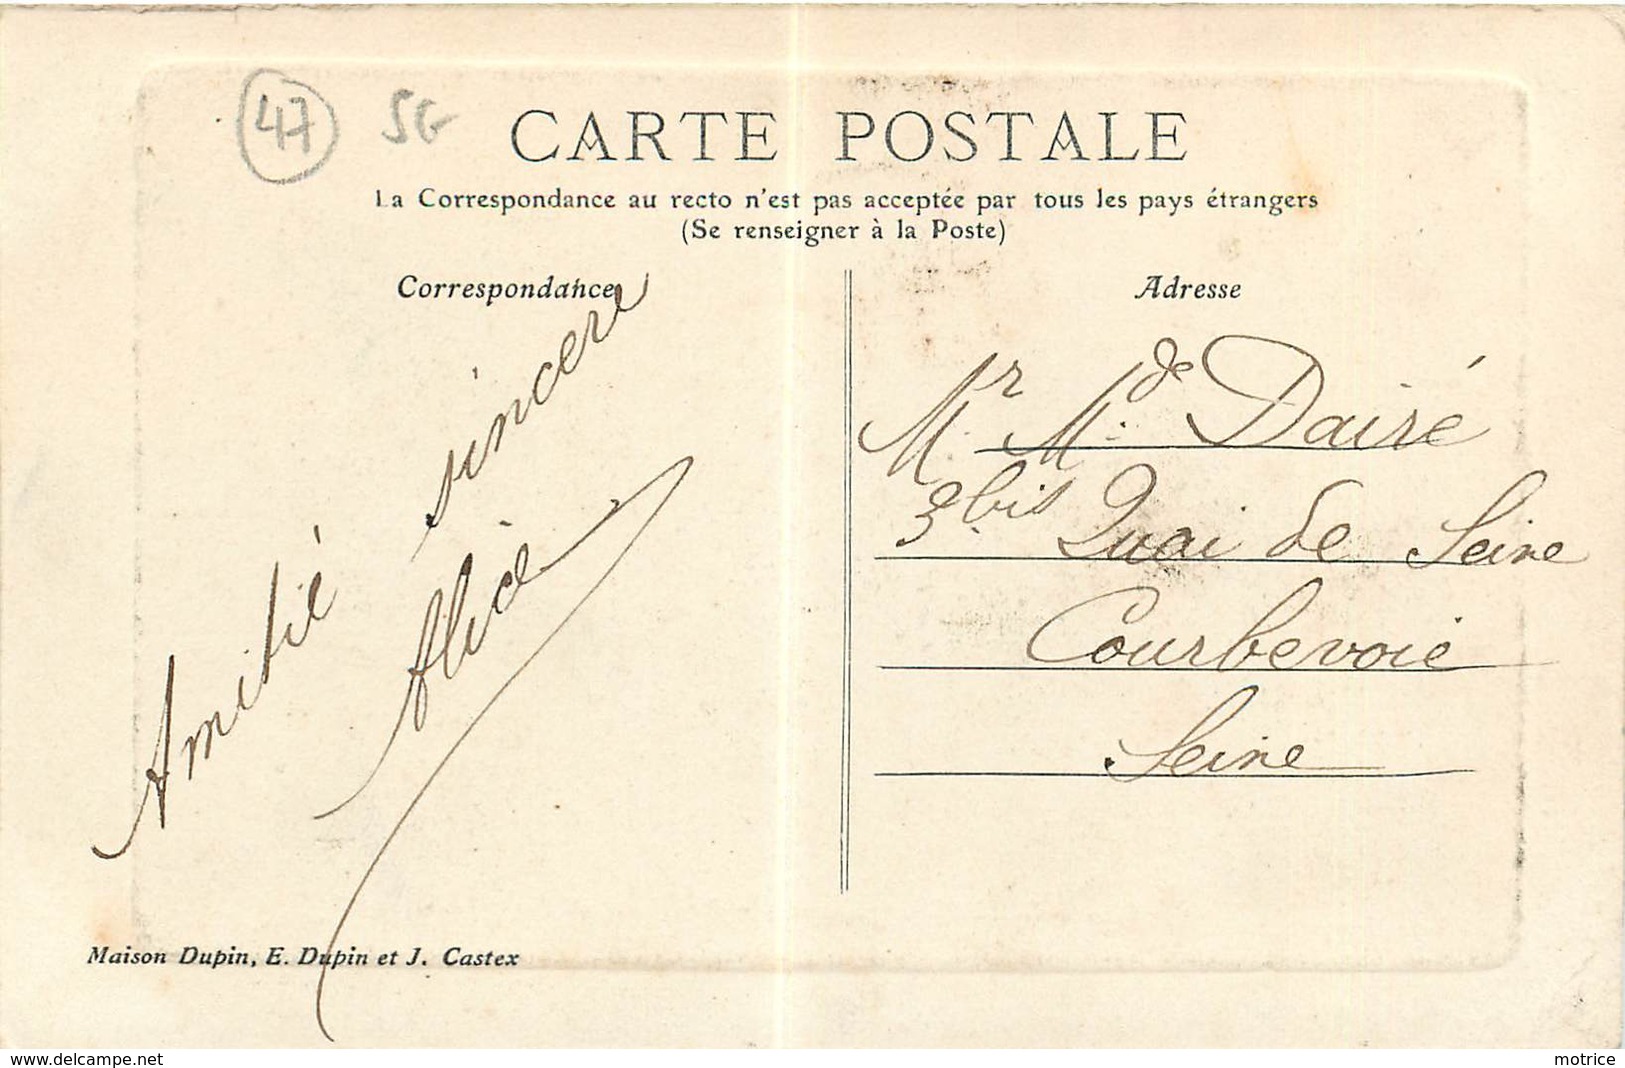 47 SG
CARTE POSTALE
La Correspondance au recto n'est pas acceptée par tous les pays étrangers
(Se renseigner à la Poste)
Correspondance
Amitié sincere
Alice
Maison Dupin, E. Dupin et J. Castex
Adresse
Mr Mde Dairé
3bis Quai de Seine
Courbevoie
Seine
www.delcampe.net
motrice